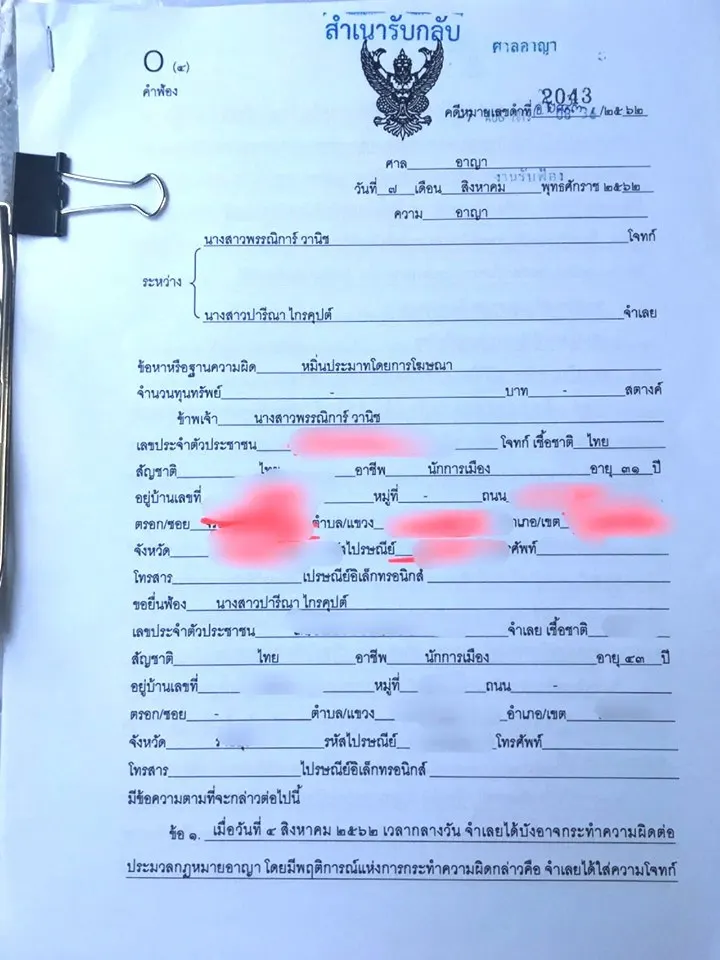 สำเนารับกลับ
ศาลอาญา
O (๔)
คำฟ้อง
2043
คดีหมายเลขดำที่ /๒๕๖๒
ศาล อาญา
งานรับฟ้อง
วันที่ ๗ เดือน สิงหาคม พุทธศักราช ๒๕๖๒
ความ อาญา
นางสาวพรรณิการ์ วานิช โจทก์
ระหว่าง
นางสาวปารีณา ไกรคุปต์ จำเลย
ข้อหาหรือฐานความผิด หมิ่นประมาทโดยการโฆษณา
จำนวนทุนทรัพย์ - บาท - สตางค์
ข้าพเจ้า นางสาวพรรณิการ์ วานิช
เลขประจำตัวประชาชน โจทก์ เชื้อชาติ ไทย
สัญชาติ อาชีพ นักการเมือง อายุ ๓๑ ปี
อยู่บ้านเลขที่ หมู่ที่ - ถนน
ตรอก/ซอย ตำบล/แขวง
จังหวัด
โทรสาร ไปรษณีย์อิเล็กทรอนิกส์
ขอยื่นฟ้อง นางสาวปารีณา ไกรคุปต์
เลขประจำตัวประชาชน จำเลย เชื้อชาติ
สัญชาติ ไทย อาชีพ นักการเมือง อายุ ๔๓ ปี
อยู่บ้านเลขที่ หมู่ที่ ถนน -
ตรอก/ซอย - ตำบล/แขวง อำเภอ/เขต
จังหวัด รหัสไปรษณีย์ โทรศัพท์
โทรสาร ไปรษณีย์อิเล็กทรอนิกส์
มีข้อความตามที่จะกล่าวต่อไปนี้
ข้อ ๑. เมื่อวันที่ ๔ สิงหาคม ๒๕๖๒ เวลากลางวัน จำเลยได้บังอาจกระทำความผิดต่อ
ประมวลกฎหมายอาญา โดยมีพฤติการณ์แห่งการกระทำความผิดกล่าวคือ จำเลยได้ใส่ความโจทก์